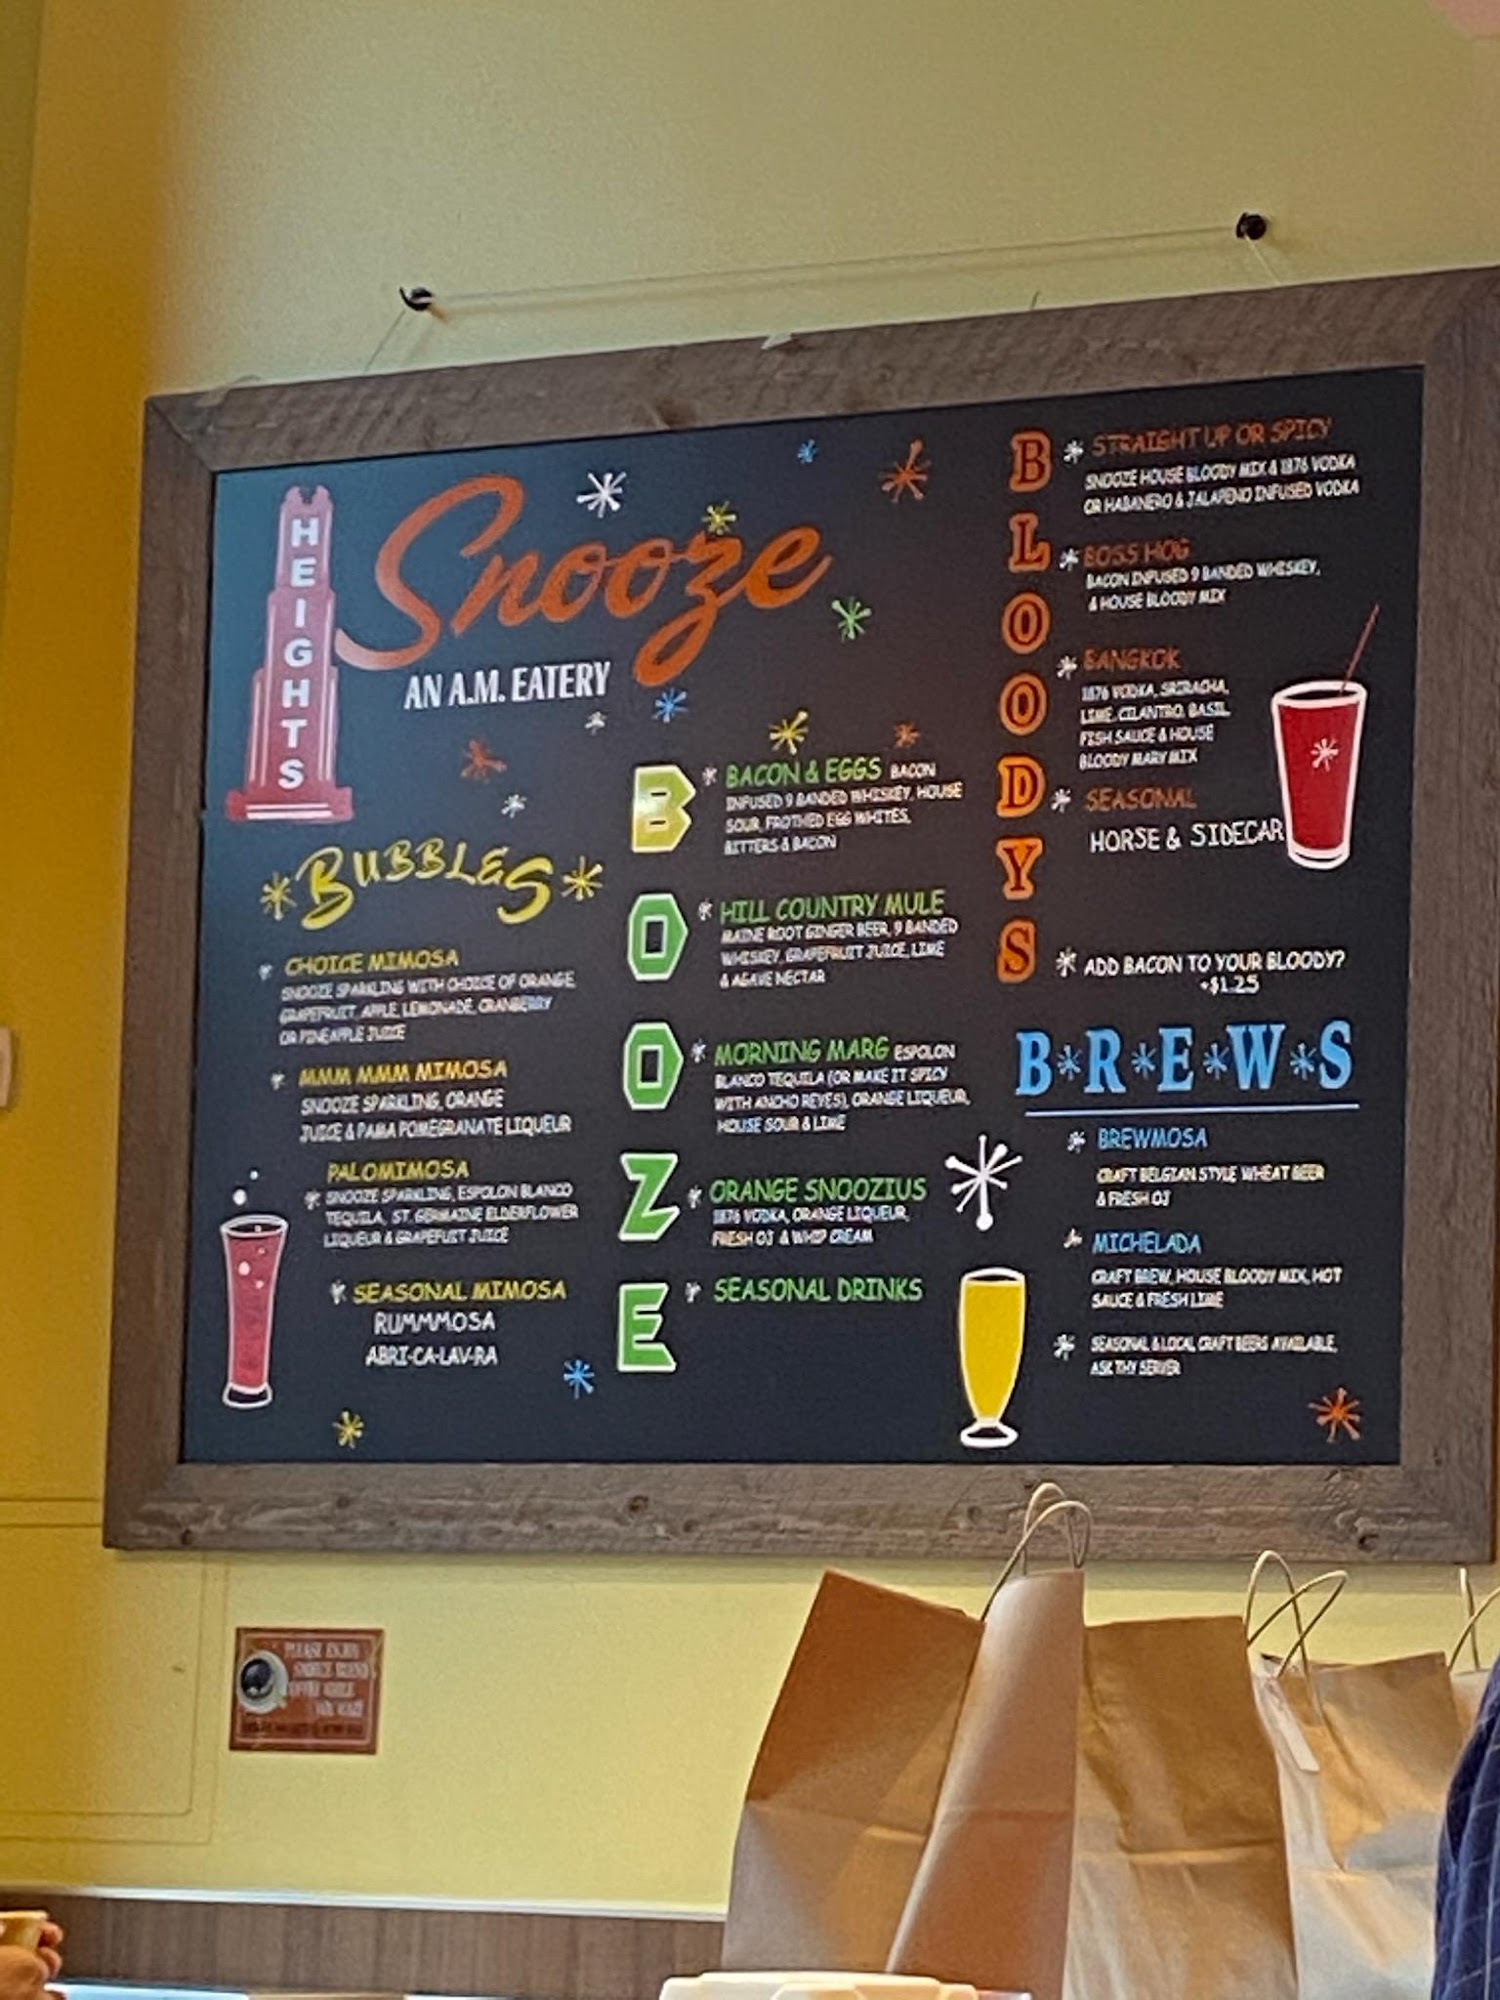 HEIGHTS
Snooze
AN A.M. EATERY
BUBBLES
CHOICE MIMOSA
SNOOZE SPARKLING WITH CHOICE OF ORANGE,
GRAPEFRUIT, APPLE, LEMONADE, CRANBERRY
OR PINEAPPLE JUICE
MMM MMM MIMOSA
SNOOZE SPARKLING, ORANGE
JUICE & PAMA POMEGRANATE LIQUEUR
PALOMIMOSA
SNOOZE SPARKLING, ESPOLON BLANCO
TEQUILA, ST. GERMAINE ELDERFLOWER
LIQUEUR & GRAPEFUIT JUICE
SEASONAL MIMOSA
RUMMMOSA
ABRI-CA-LAV-RA
BOOZE
BACON & EGGS BACON
INFUSED 9 BANDED WHISKEY, HOUSE
SOUR, FROTHED EGG WHITES,
BITTERS & BACON
HILL COUNTRY MULE
MAINE ROOT GINGER BEER, 9 BANDED
WHISKEY, GRAPEFRUIT JUICE, LIME
& AGAVE NECTAR
MORNING MARG ESPOLON
BLANCO TEQUILA (OR MAKE IT SPICY
WITH ANCHO REYES), ORANGE LIQUEUR,
HOUSE SOUR & LIME
ORANGE SNOOZIUS
1876 VODKA, ORANGE LIQUEUR,
FRESH OJ & WHIP CREAM
SEASONAL DRINKS
BLOODYS
STRAIGHT UP OR SPICY
SNOOZE HOUSE BLOODY MIX & 1876 VODKA
OR HABANERO & JALAPENO INFUSED VODKA
BOSS HOG
BACON INFUSED 9 BANDED WHISKEY,
& HOUSE BLOODY MIX
BANGKOK
1876 VODKA, SRIRACHA,
LIME, CILANTRO, BASIL,
FISH SAUCE & HOUSE
BLOODY MARY MIX
SEASONAL
HORSE & SIDECAR
ADD BACON TO YOUR BLOODY?
+$1.25
B*R*E*W*S
BREWMOSA
CRAFT BELGIAN STYLE WHEAT BEER
& FRESH OJ
MICHELADA
CRAFT BREW, HOUSE BLOODY MIX, HOT
SAUCE & FRESH LIME
SEASONAL & LOCAL CRAFT BEERS AVAILABLE,
ASK THY SERVER
PLEASE ENJOY
SNOOZE BLEND
COFFEE WHILE
YOU WAIT